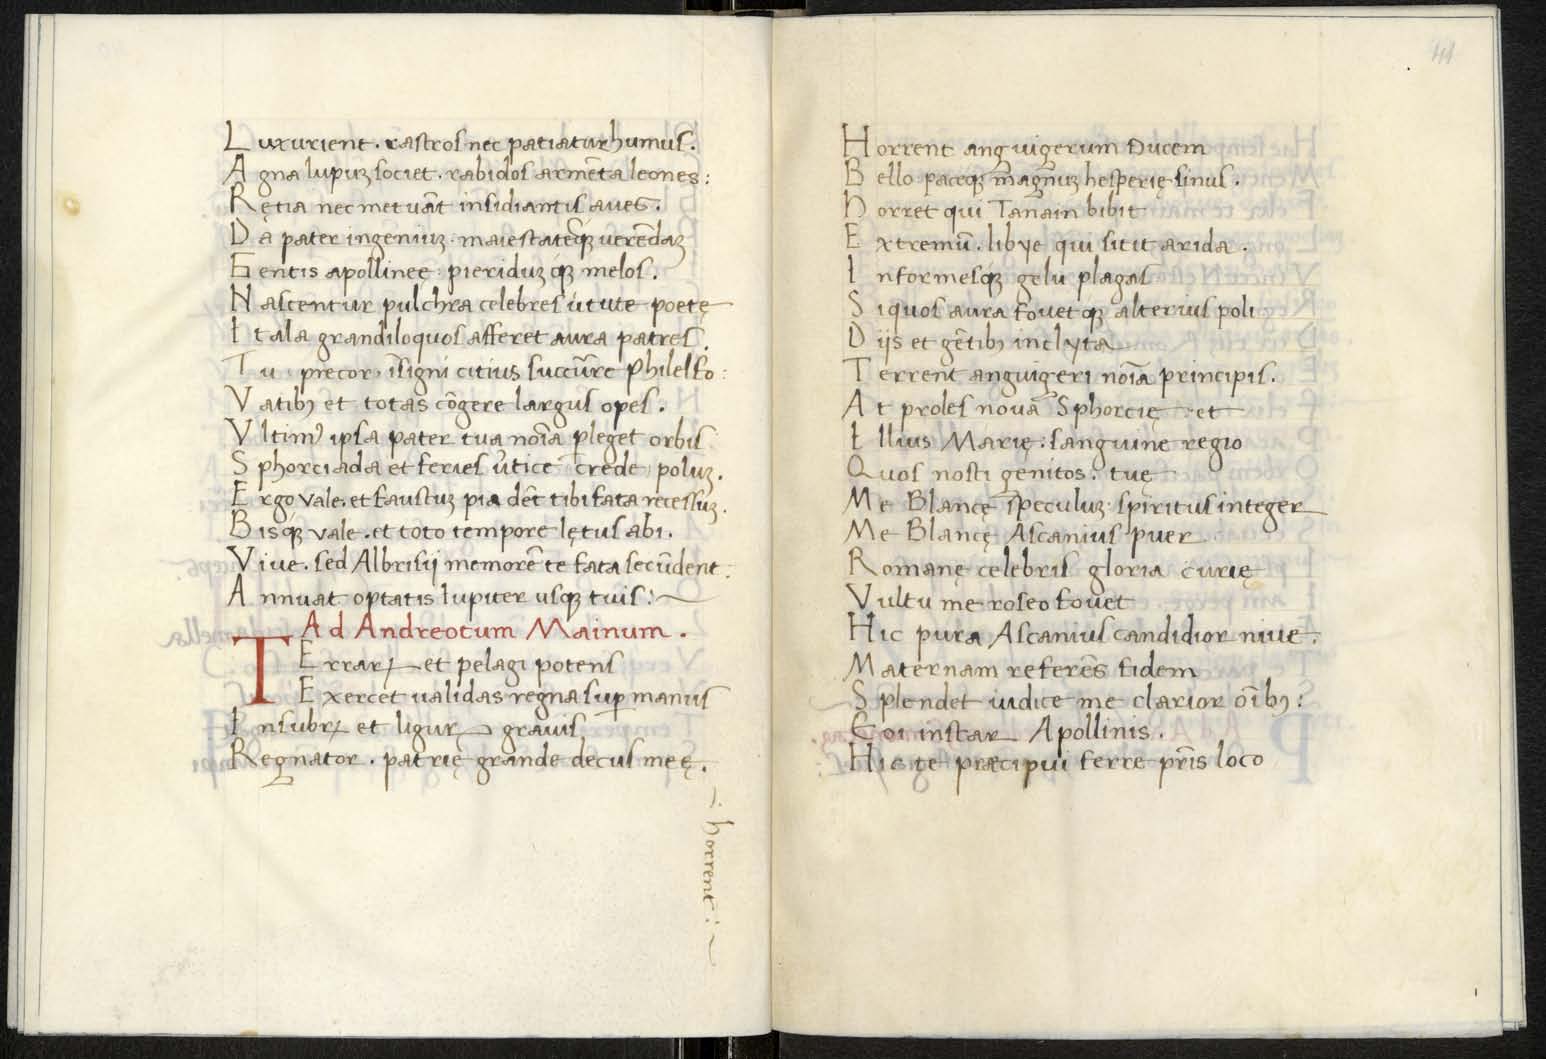 Luxurient. rastros nec patiatur humus.
Agna lupuꝫ societ. rabidos armẽta leones:
Rętia nec metuãt insidiantis aues.
Da pater ingeniuꝫ: maiestateꝗꝫ uerẽdaꝫ
Gentis apollineę: pieriduꝫ ꝗꝫ melos.
Nascentur pulchra celebres ũtute poetę
Itala grandiloquos afferet aura patres.
Tu precor, ĩsigni citius succũre Philelfo:
Vatibꝫ et totas cõgere largus opes.
Vltimꝰ ipsa pater tua noĩa ꝑleget orbis
Sphorciada et feries ũtice crede poluꝫ.
Ergo vale. et faustuꝫ pia dẽt tibi fata recessuꝫ.
Bisꝗꝫ vale. et toto tempore lętus abi.
Viue. sed Albrisij memorẽ te fata secũdent:
Annuat optatis Iupiter usꝗꝫ tuis:
Ad Andreotum Mainum.
TErraꝝ et pelagi potens
Exercet ualidas regna suꝑ manus
Insubꝝ et liguꝝ grauis
Regnator. patrię grande decus meę.
horrent:
41
Horrent anguigerum Ducem
Bello paceꝗꝫ magnuꝫ hesperię sinus.
Horret qui Tanain bibit
Extremũ. libye qui sitit arida.
Informesꝗꝫ gelu plagas
Siquos aura fouetꝗꝫ alterius poli
Dijs et gẽtibꝫ inclyta
Terrent anguigeri noĩa principis.
At proles noua Sphorcię et
Illius Marię: sanguine regio
Quos nosti genitos: tuę
Me Blancę speculuꝫ spiritus integer
Me Blancę Ascanius puer
Romanę celebris gloria curię
Vultu me roseo fouet
Hic pura Ascanius candidior niue.
Maternam referẽs fidem
Splendet iudice me clarior oĩbꝫ:
Eoi instar Apollinis.
Hic te præcipui ferre pr̃is loco